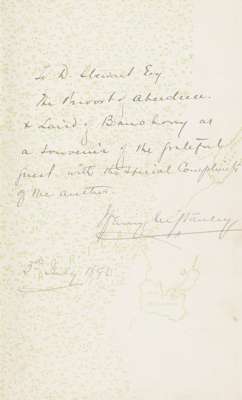 To D. Stewart Esq
The Provost of Aberdeen
& Laird of Banchory as
a souvenir of the grateful
guest with the special Compliments
of the author.
Henry M Stanley
3rd July 189